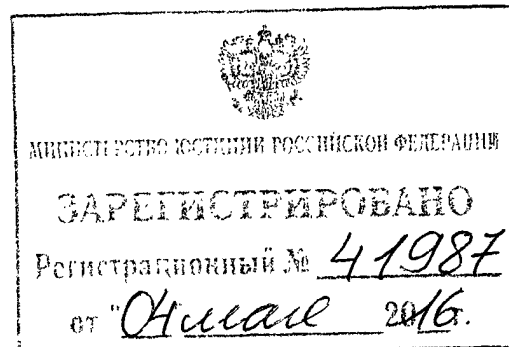 МИНИСТЕРСТВО ЮСТИЦИИ РОССИЙСКОЙ ФЕДЕРАЦИИ
ЗАРЕГИСТРИРОВАНО
Регистрационный № 41987
от "04 мая 2016г.